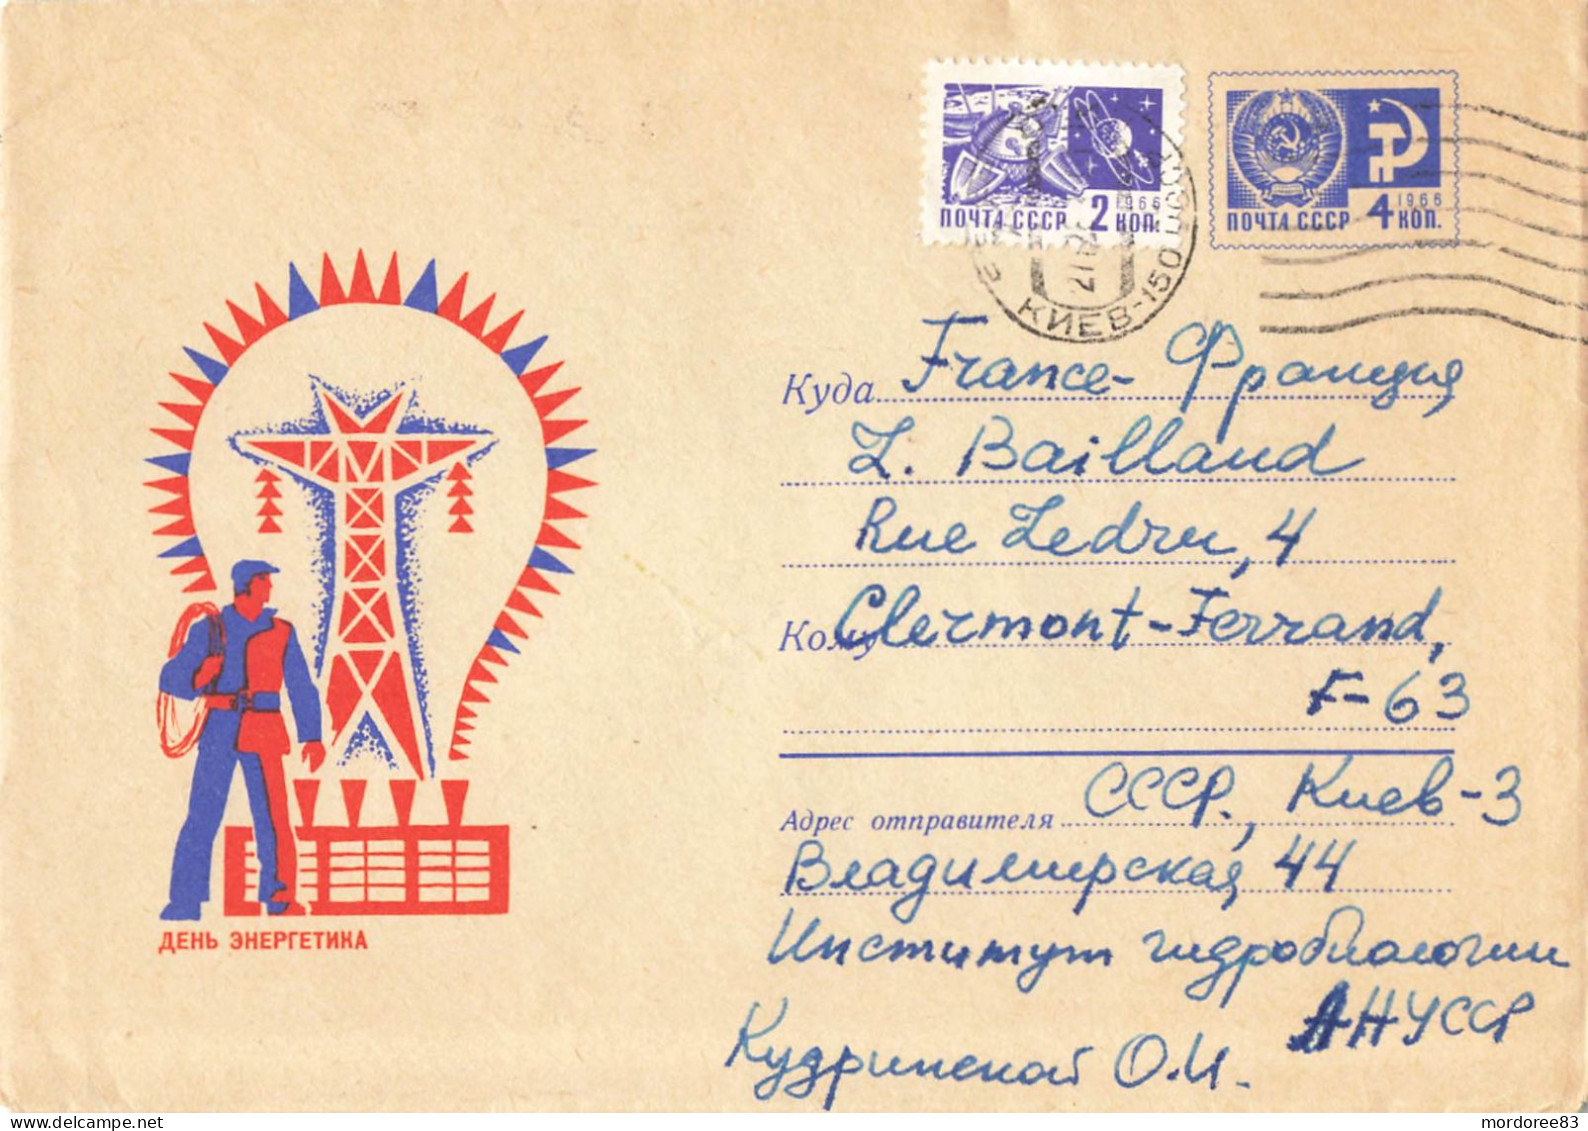 1966
ПОЧТА СССР 2 КОП.
1966
ПОЧТА СССР 4 КОП.
КИЕВ-150
Куда France - Франция
L. Bailland
Rue Ledru, 4
Кому Clermont-Ferrand,
F-63
Адрес отправителя СССР., Киев-3
Владимирская, 44
Институт гидробиологии
АНУССР
Кудринской О.И.
ДЕНЬ ЭНЕРГЕТИКА
mordoree83